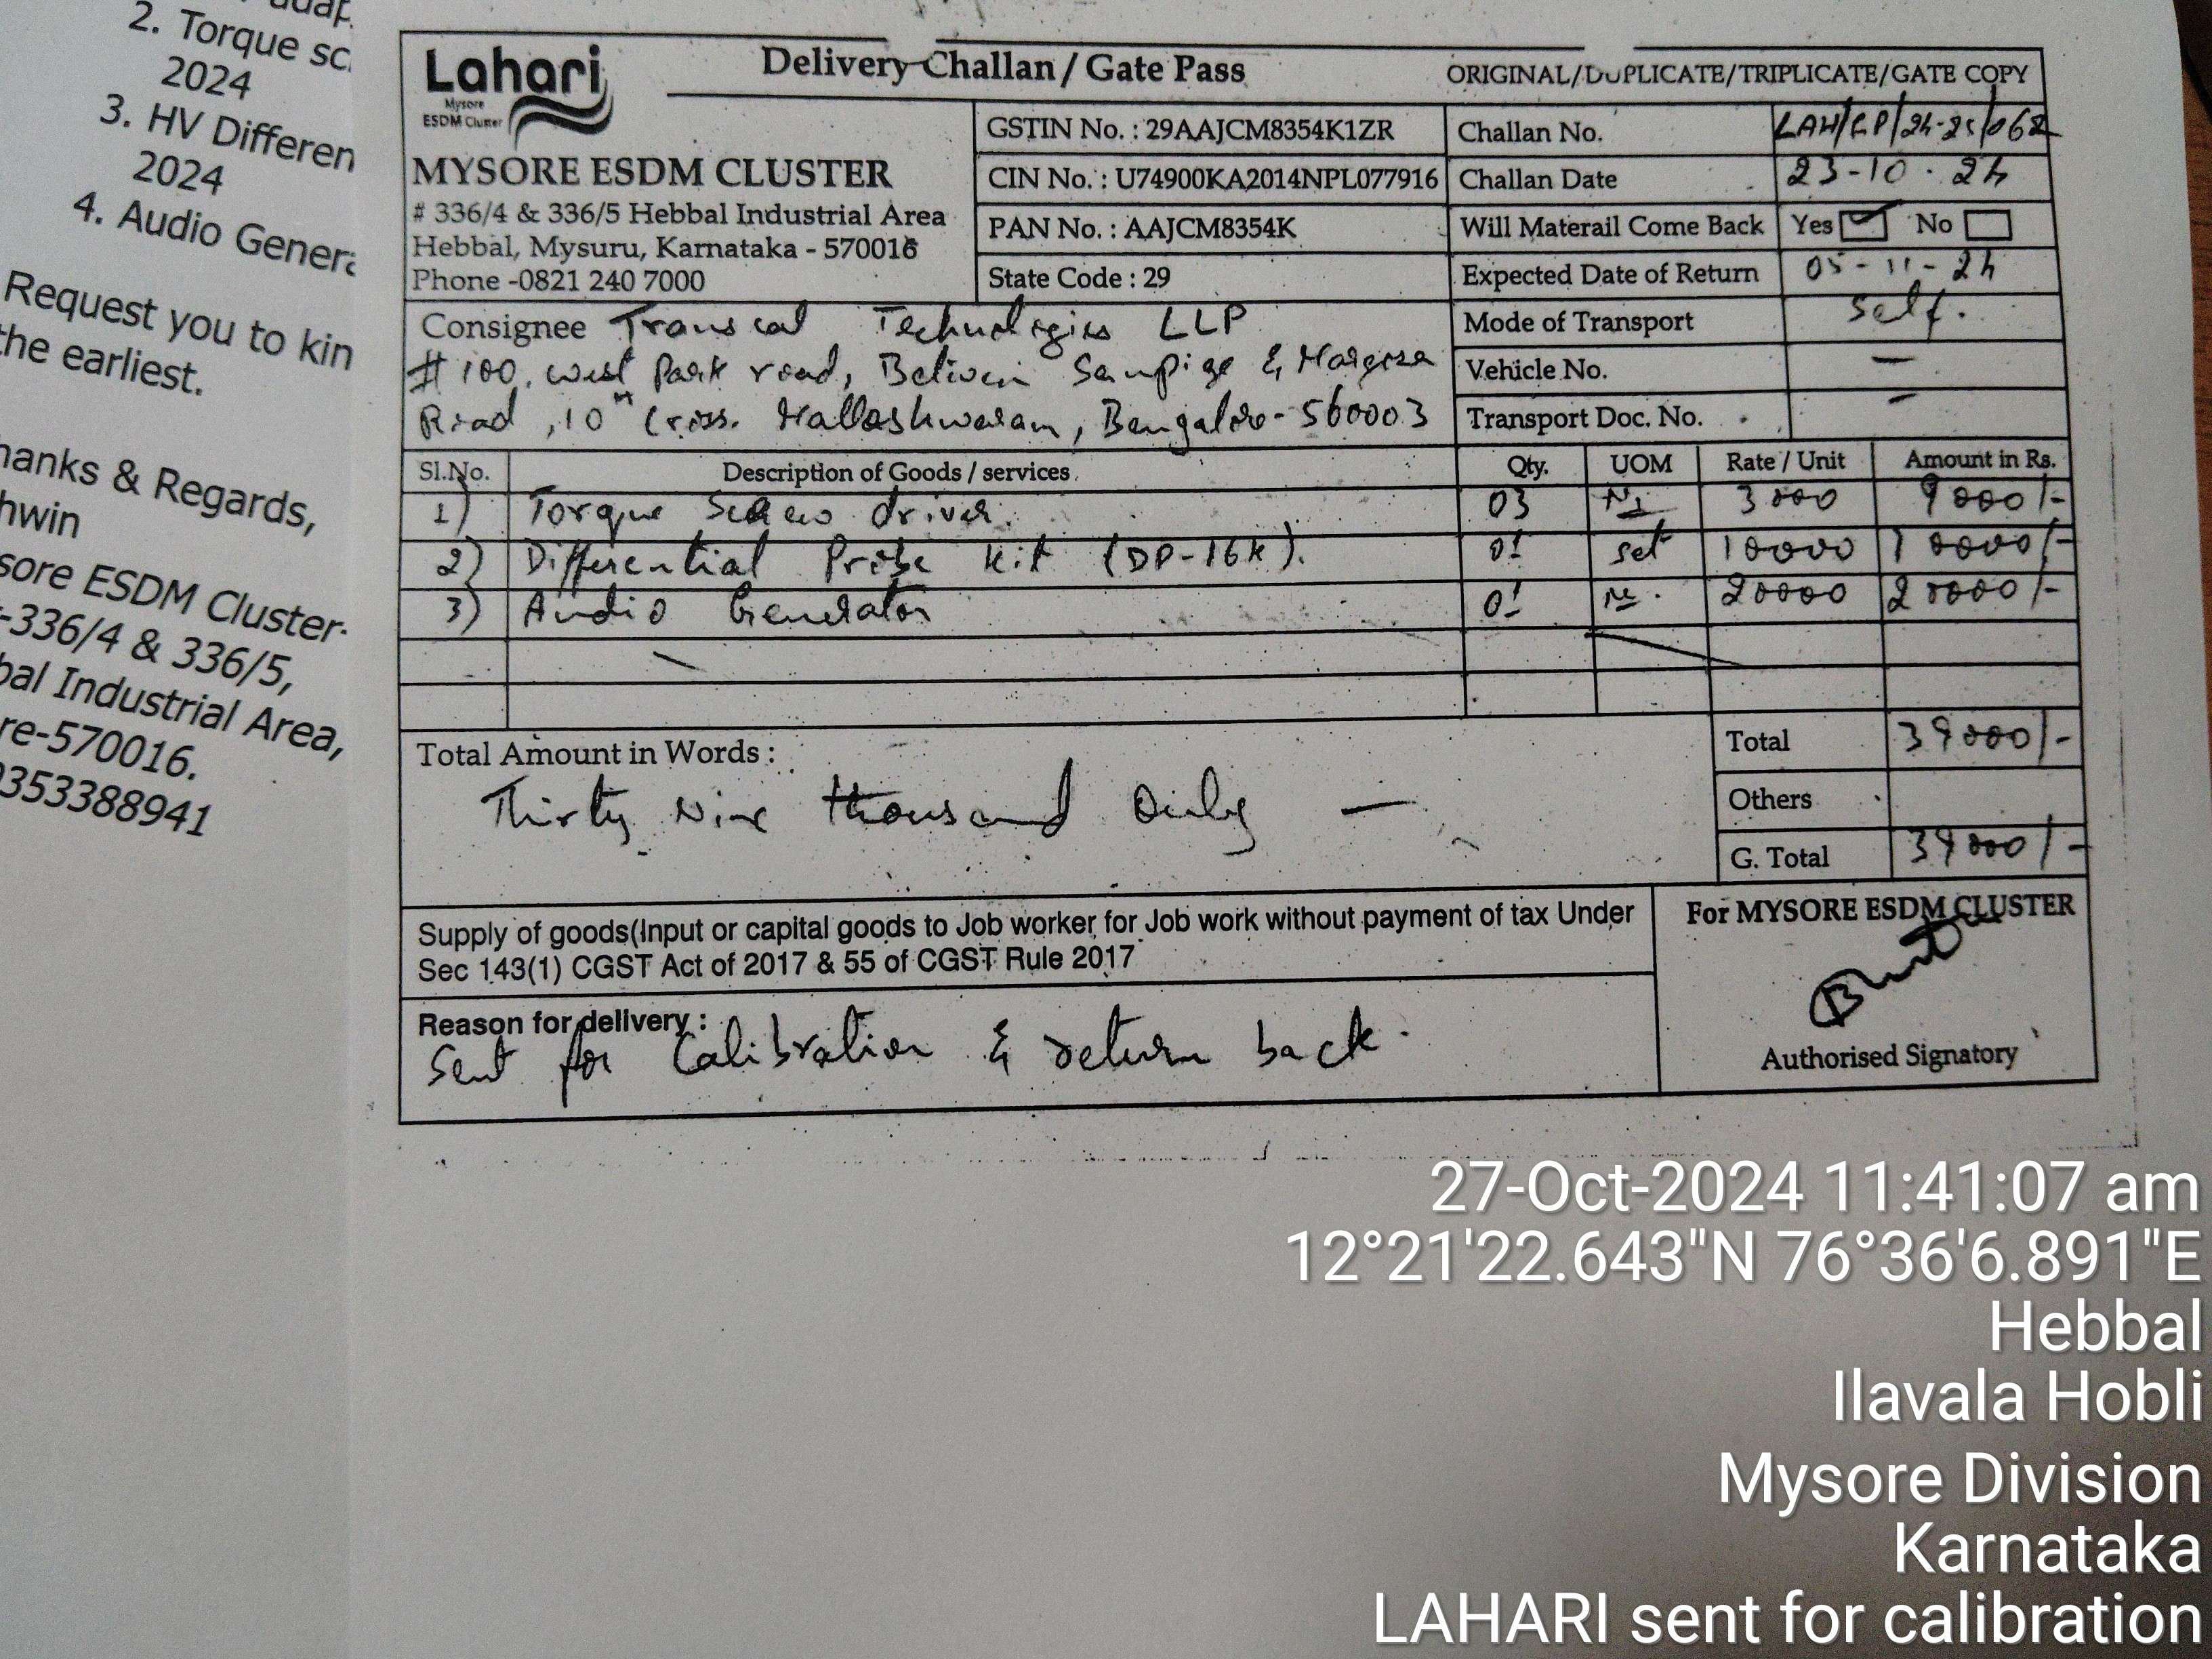 adap
2. Torque sc
2024
3. HV Differen
2024
4. Audio Genera
Request you to kin
the earliest.
hanks & Regards,
hwin
sore ESDM Cluster-
-336/4 & 336/5,
bal Industrial Area,
re-570016.
9353388941
Lahari
Mysore
ESDM Cluster
Delivery Challan / Gate Pass
ORIGINAL/DUPLICATE/TRIPLICATE/GATE COPY
MYSORE ESDM CLUSTER
# 336/4 & 336/5 Hebbal Industrial Area
Hebbal, Mysuru, Karnataka - 570016
Phone -0821 240 7000
GSTIN No. : 29AAJCM8354K1ZR
CIN No. : U74900KA2014NPL077916
PAN No. : AAJCM8354K
State Code : 29
Challan No. LAH/GP/24-25/062
Challan Date 23-10-24
Will Materail Come Back Yes No
Expected Date of Return 05-11-24
Mode of Transport Self.
Vehicle No. —
Transport Doc. No. -
Consignee Transcal Technologies LLP
# 100, west Park road, Between Sampige & Margosa
Road, 10th Cross. Malleshwaram, Bengalore-560003
Sl.No. Description of Goods / services Qty. UOM Rate / Unit Amount in Rs.
1) Torque Screw driver. 03 3000 9000/-
2) Differential Probe Kit (DP-16K). 01 set 10000 10000/-
3) Audio Generator 01 20000 20000/-
Total Amount in Words :
Thirty Nine thousand Only —
Total 39000/-
Others
G. Total 39000/-
Supply of goods(Input or capital goods to Job worker for Job work without payment of tax Under
Sec 143(1) CGST Act of 2017 & 55 of CGST Rule 2017
Reason for delivery :
Sent for Calibration & return back.
For MYSORE ESDM CLUSTER
Authorised Signatory
27-Oct-2024 11:41:07 am
12°21'22.643"N 76°36'6.891"E
Hebbal
Ilavala Hobli
Mysore Division
Karnataka
LAHARI sent for calibration